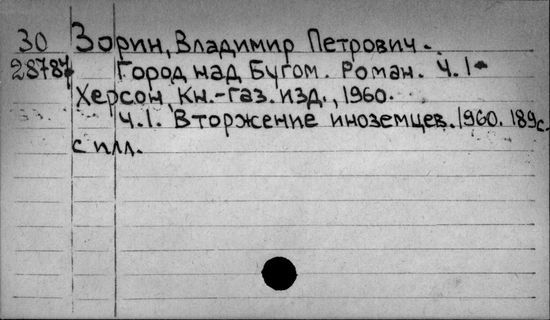 30 Зорин, Владимир Петрович.
28787 Город над Бугом. Роман. Ч.1-
Херсон, Кн.-газ. изд., 1960.
Ч.1. Вторжение иноземцев. 1960. 189с.
с илл.